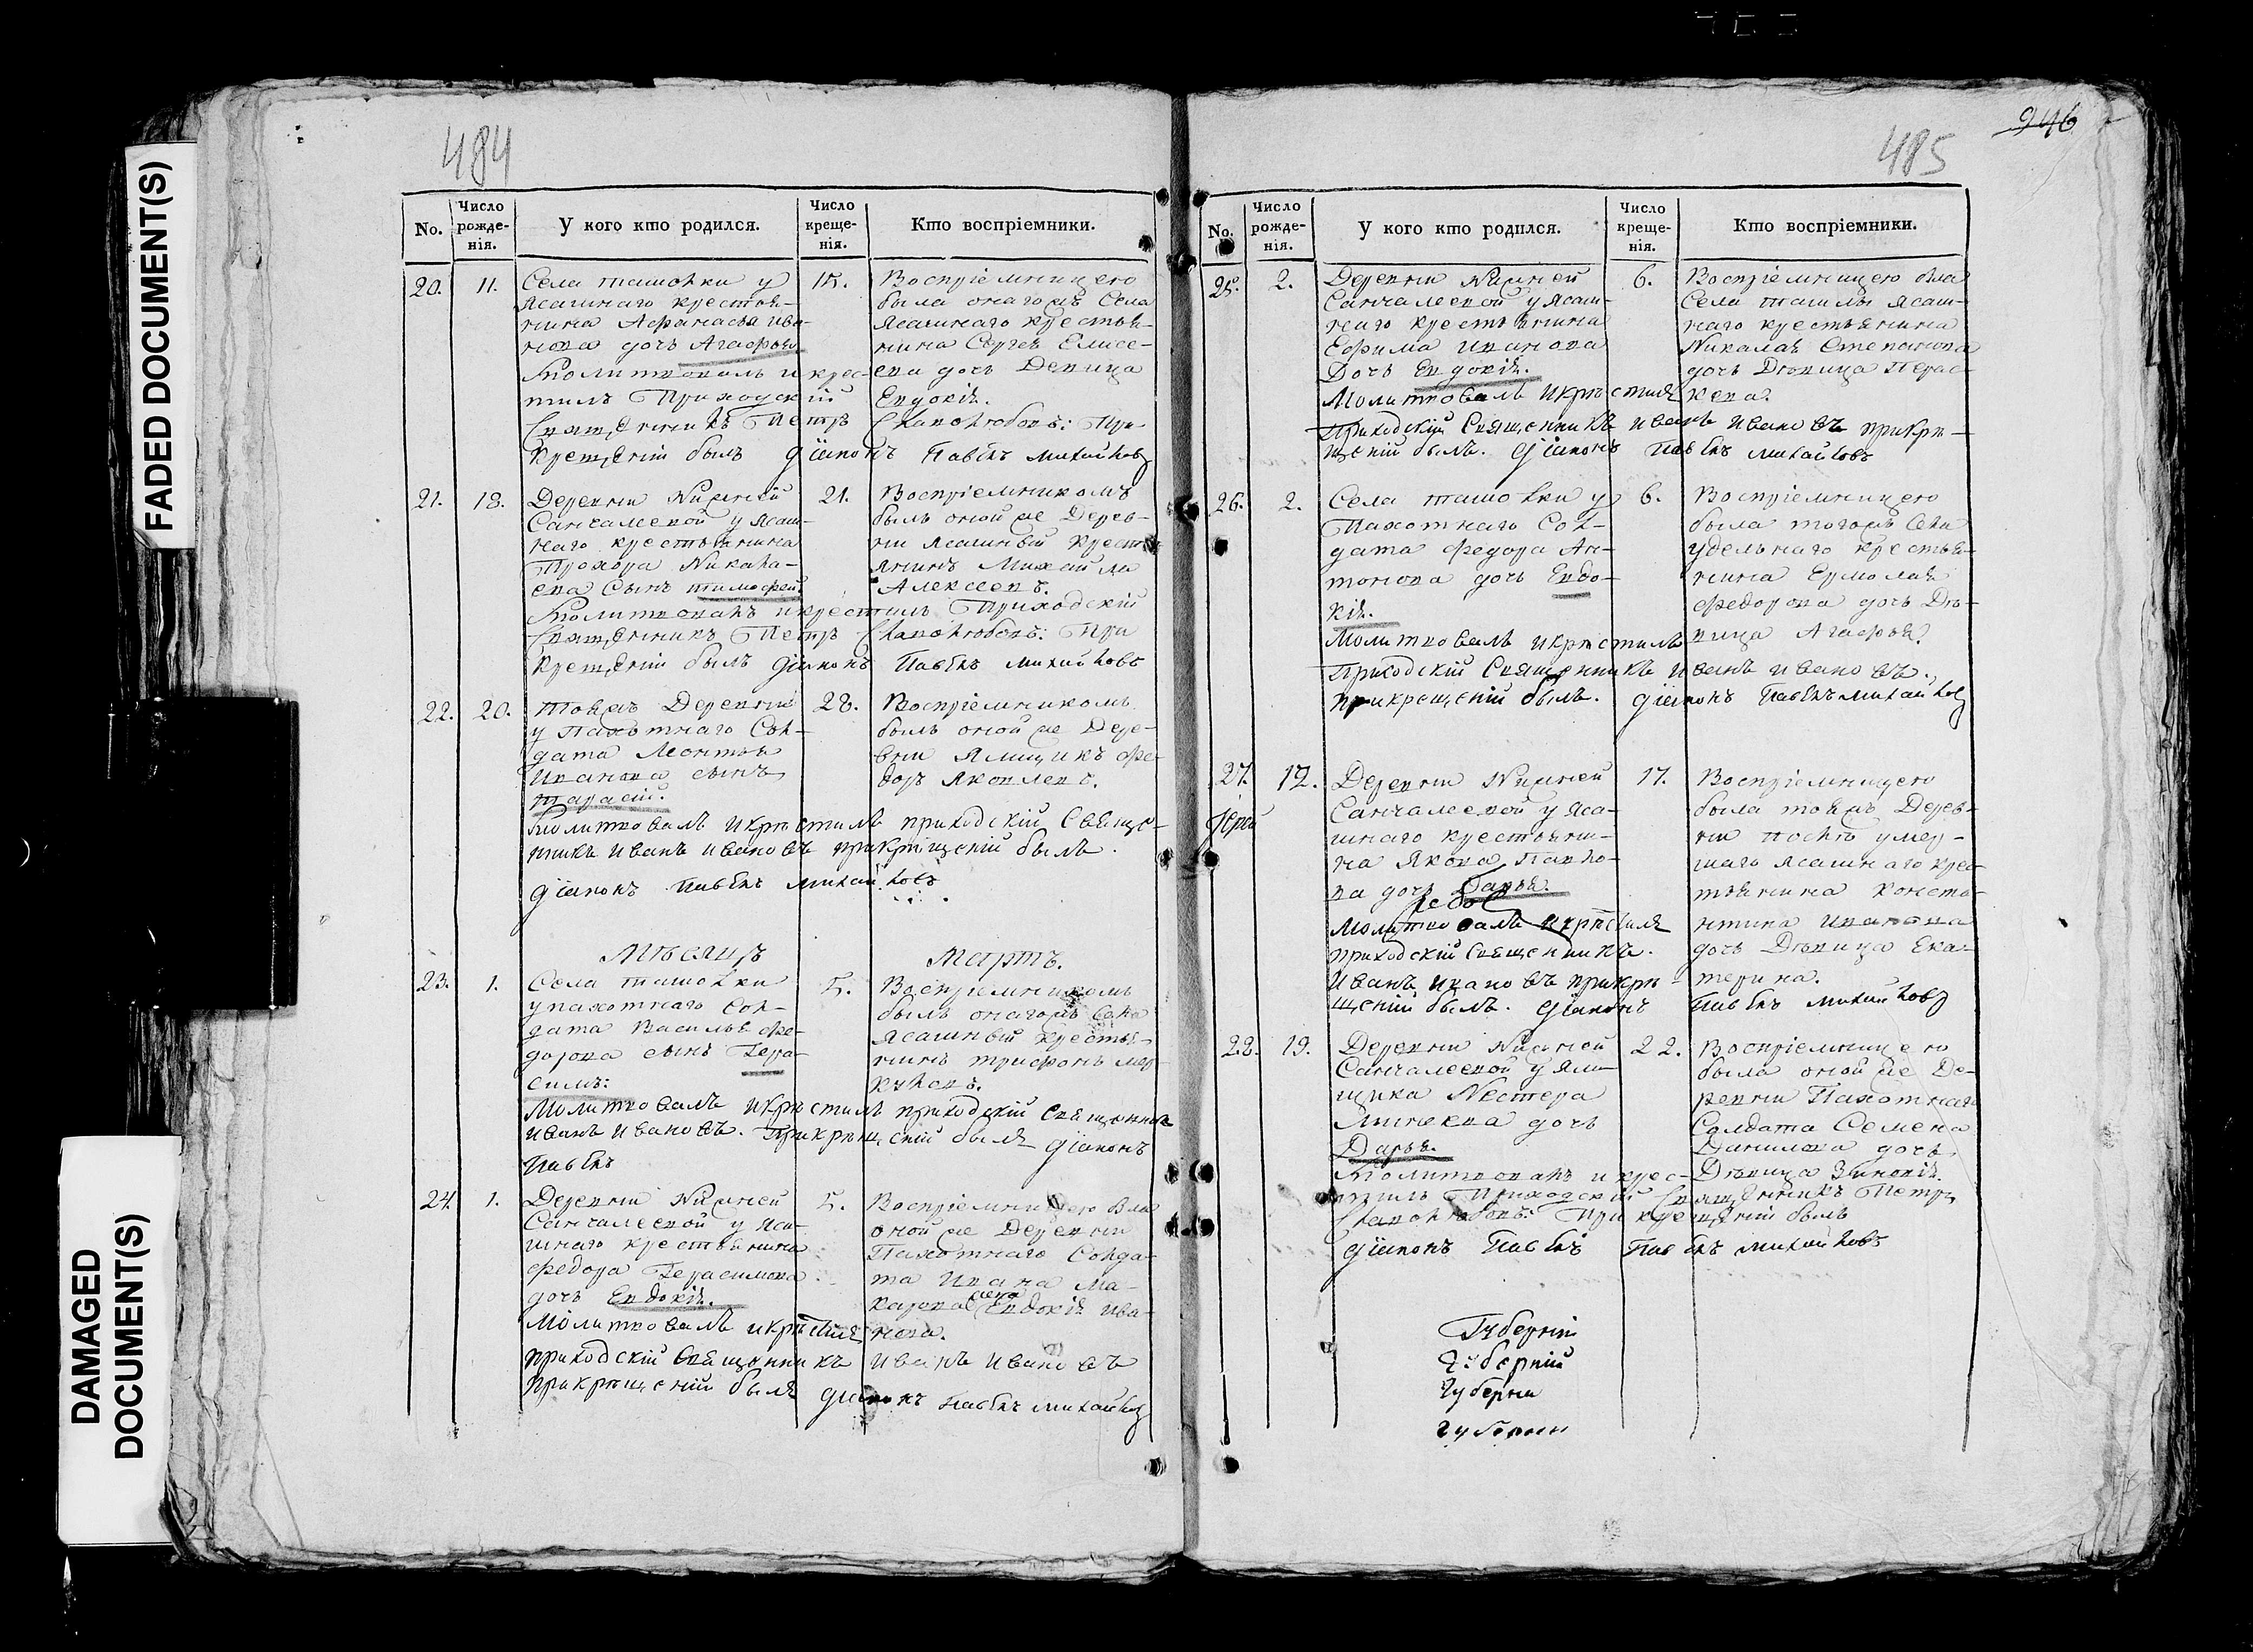 FADED DOCUMENT(S)
DAMAGED
DOCUMENT(S)
484
No.
Число рожденія.
У кого кто родился.
Число крещенія.
Кто воспріемники.
20. 11.
Села ташовки у
Ясашнаго крестья-
нина Афанасья ива-
нова дочь Агафья
Молитвовалъ и крес-
тилъ Приходскій
Священникъ Петръ
Крещеніи былъ діаконъ Павелъ михайловъ
15.
Воспріемницею
была онагожъ Села
Ясашнаго крестья-
нина Сергея Елисе-
ева дочь Девица
Евдокія.
При
21. 18.
Деревни Нижней
Санчалеевой у Ясаш-
наго крестьянина
Прохора Никала-
ева Сынъ тимофей
Молитвовалъ и крестилъ Приходскій
Священникъ Петръ При
Крещеніи былъ діаконъ Павелъ михайловъ
21.
Воспріемникомъ
былъ оной же Дерев-
ни Ясашный Кресть
янинъ Михайла
Алексеевъ.
22. 20.
тояжъ Деревни
у Пахотнаго Сол-
дата Леонтья
Иванова сынъ
тарасій.
Молитвовалъ и крѣстилъ приходскій Свяще-
нникъ Иванъ Ивановъ прикрѣщеніи былъ
діаконъ Павелъ михайловъ
28.
Воспріемникомъ
былъ оной же Дере-
вни Ямщикъ Фе-
доръ Яковлевъ.
Мѣсяцъ Мартъ.
23. 1.
Села ташовки
у пахотнаго Сол-
дата Василья Фе-
дорова сынъ Гера-
симъ:
Молитвовалъ и крѣстилъ приходскій Священник
Иванъ Ивановъ. Прикрѣщеніи былъ діаконъ
Павелъ
5.
Воспріемникомъ
былъ онагожъ Села
Ясашный Крестья-
нинъ трифонъ мер-
куловъ.
24. 1.
Деревни Нижней
Санчалеевой у Яса-
шнаго крестьянина
Федора Герасимова
дочь Евдокія.
Молитвовалъ и крѣстилъ
приходскій Священникъ Иванъ Ивановъ
прикрѣщеніи былъ діаконъ Павелъ михайловъ
5.
Воспріемницею была
оной же Деревни
Пахотнаго Солда-
та Ивана Ма-
карова жена Евдокія Ива-
нова.
946
485
No.
Число рожденія.
У кого кто родился.
Число крещенія.
Кто воспріемники.
25. 2.
Деревни Нижней
Санчалеевой у Ясаш-
наго крестьянина
Ефима Иванова
Дочь Евдокія.
Молитвовалъ и крѣстилъ
Приходскій Священникъ иванъ ивановъ прикрѣ-
щеніи былъ. діаконъ Павелъ михайловъ
6.
Воспріемницею была
Села ташлы Ясаш-
наго крестьянина
Никалая Степанова
дочь Дѣвица Парас-
кева.
26. 2.
Села ташовки у
Пахотнаго Сол-
дата Федора Ан-
тонова дочь Евдо-
кія.
Молитвовалъ и крѣстилъ
Приходскій Священникъ Иванъ Ивановъ.
прикрещеніи былъ. діаконъ Павелъ михайловъ
6.
Воспріемницею
была тогожъ Села
удельнаго крестья-
нина Ермолая
Федорова дочь Дѣ-
вица Агафья.
27. 12.
Деревни Нижней
Санчалеевой у Яса-
шнаго крестьяни-
на Якова Павло-
ва дочь Дарья.
Молитвовалъ и крѣстилъ
приходскій Священникъ.
Иванъ Ивановъ прикрѣ-
щеніи былъ. діаконъ Павелъ михайловъ
17.
Воспріемницею
была тояжъ Дерев-
ни послѣ умер-
шаго ясашнаго крес-
тьянина Конста-
нтина Иванова
дочь Дѣвица Ека-
терина.
28. 19.
Деревни Нижней
Санчалеевой у Ям-
щика Нестера
Минеева дочь
Дарья.
Молитвовалъ и крес-
тилъ Приходскій Священникъ Петръ
При крещеніи былъ
діаконъ Павелъ Павелъ михайловъ
22.
Воспріемницею
была оной же Де-
ревни Пахотнаго
Солдата Семена
Данилова дочь
Дѣвица Зиновія.
Губерніи
Губерніи
Губерни
Губернии